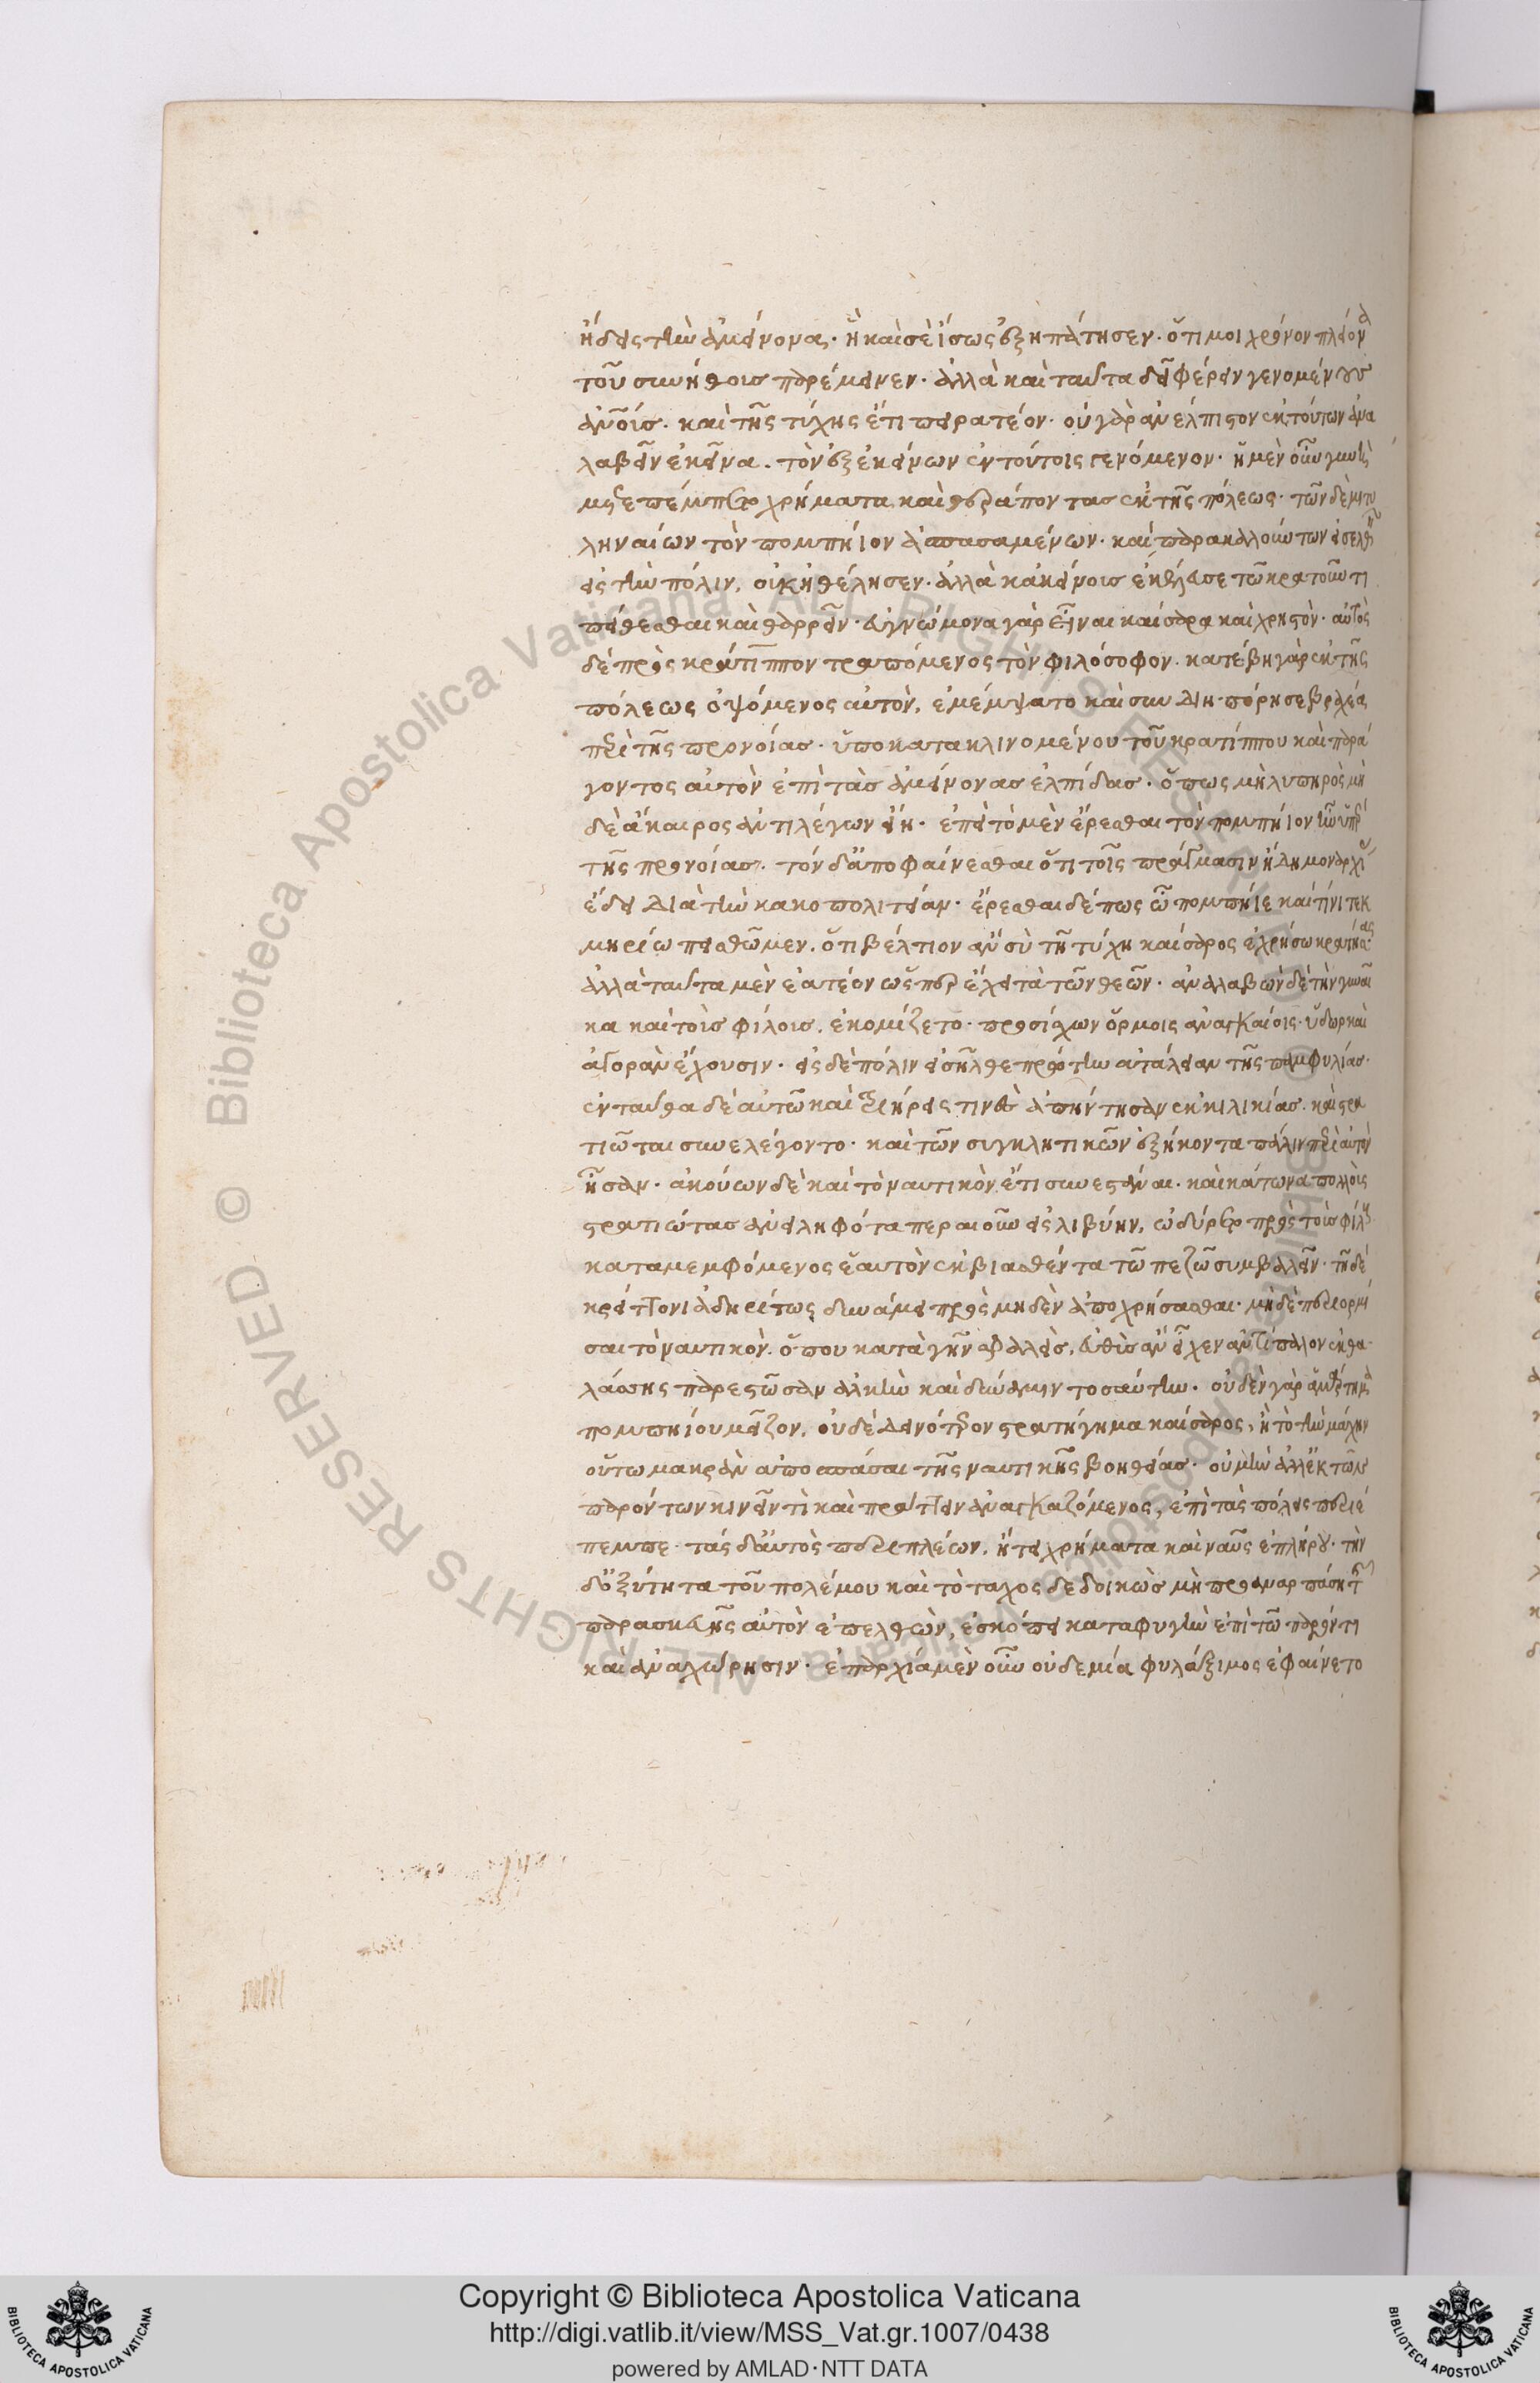 ᾔδεις τὴν ἀμείνονα· ἣ καὶ σὲ ἴσως ἐξηπάτησεν· ὅτι μοι χρόνον πλείονα
τοῦ συνήθους παρέμεινεν· ἀλλὰ καὶ ταῦτα δεῖ φέρειν γενομένους
ἀνοις· καὶ τῆς τύχης ἔτι πειρατέον· οὐ γὰρ ἀνέλπιστον ἐκ τούτων ἀνα
λαβεῖν ἐκεῖνα. τὸν ἐξ ἐκείνων ἐν τούτοις γενόμενον· ἡ μὲν οὖν γυνὴ
μετεπέμπετο χρήματα καὶ θεράποντας ἐκ τῆς πόλεως· τῶν δὲ μιτυ
ληναίων τὸν πομπήιον ἀσπασαμένων· καὶ παρακαλούντων εἰσελθεῖν
εἰς τὴν πόλιν, οὐκ ἠθέλησεν· ἀλλὰ κἀκείνοις ἐκέλευσε τῷ κρατοῦντι
πείθεσθαι καὶ θαρρεῖν· εὐγνώμονα γὰρ εἶναι καίσαρα καὶ χρηστόν· αὐτὸς
δὲ πρὸς κράτιππον τραπόμενος τὸν φιλόσοφον. κατέβη γὰρ ἐκ τῆς
πόλεως ὀψόμενος αὐτόν, ἐμέμψατο καὶ συνδιηπόρησε βραχέα
περὶ τῆς προνοίας· ὑποκατακλινομένου τοῦ κρατίππου καὶ παρά
γοντος αὐτὸν ἐπὶ τὰς ἀμείνονας ἐλπίδας· ὅπως μὴ λυπηρὸς μη
δὲ ἄκαιρος ἀντιλέγων εἴη· ἐπεὶ τὸ μὲν ἔρεσθαι τὸν πομπήιον ἦν ὑπὲρ
τῆς προνοίας. τὸν δ' ἀποφαίνεσθαι ὅτι τοῖς πράγμασιν ἤδη μοναρχίας
ἔδει διὰ τὴν κακοπολιτείαν· ἔρεσθαι δὲ πῶς ὦ πομπήιε καὶ τίνι τεκ
μηρίῳ πεισθῶμεν. ὅτι βέλτιον ἂν σὺ τῇ τύχῃ καίσαρος ἐχρήσω κρατήσας·
ἀλλὰ ταῦτα μὲν ἐατέον ὥσπερ ἔχει τὰ τῶν θεῶν· ἀναλαβὼν δὲ τὴν γυναῖ
κα καὶ τοὺς φίλους. ἐκομίζετο· προσίσχων ὅρμοις ἀναγκαίοις· ὕδωρ καὶ
ἀγορὰν ἔχουσιν· εἰς δὲ πόλιν εἰσῆλθε πρώτην ἀτάλειαν τῆς παμφυλίας·
ἐνταῦθα δὲ αὐτῷ καὶ τριήρεις τινὲς ἀπήντησαν ἐκ κιλικίας. καὶ στρα
τιῶται συνελέγοντο· καὶ τῶν συγκλητικῶν ἑξήκοντα πάλιν περὶ αὐτὸν
ἦσαν· ἀκούων δὲ καὶ τὸ ναυτικὸν ἔτι συνεστάναι. καὶ κάτωνα πολλοὺς
στρατιώτας ἀνειληφότα περαιοῦν εἰς λιβύην, ὠδύρετο πρὸς τοὺς φίλους
καταμεμφόμενος ἑαυτὸν ἐκβιασθέντα τῷ πεζῷ συμβαλεῖν· τῇ δὲ
κρείττονι ἀδηρίτως δυνάμει πρὸς μηδὲν ἀποχρήσασθαι· μηδὲ περιορμί
σαι τὸ ναυτικόν. ὅπου κατὰ γῆν σφαλείς, εὐθὺς ἂν εἶχεν ἀντίπαλον ἐκ θα
λάσσης παρεστῶσαν ἀλκὴν καὶ δύναμιν τοσαύτην· οὐδὲν γὰρ ἁμάρτημα
πομπηίου μεῖζον. οὐδὲ δεινότερον στρατήγημα καίσαρος, ἢ τὸ τὴν μάχην
οὕτω μακρὰν ἀποσπάσαι τῆς ναυτικῆς βοηθείας· οὐ μὴν ἀλλ' ἐκ τῶν
παρόντων κινεῖν τὶ καὶ πράττειν ἀναγκαζόμενος, ἐπὶ τὰς πόλεις περιέ
πεμπε· τὰς δ' αὐτὸς περιπλέων. ᾔτει χρήματα καὶ ναῦς ἐπλήρου· τὴν
δ' ὀξύτητα τοῦ πολέμου καὶ τὸ τάχος δεδοικὼς μὴ προαναρπάσῃ τῆς
παρασκευῆς αὐτὸν ἐπελθών, ἐσκόπει καταφυγὴν ἐπὶ τῷ παρόντι
καὶ ἀναχώρησιν· ἐπαρχία μὲν οὖν οὐδεμία φυλάξιμος ἐφαίνετο
Copyright © Biblioteca Apostolica Vaticana
http://digi.vatlib.it/view/MSS_Vat.gr.1007/0438
powered by AMLAD·NTT DATA
BIBLIOTECA APOSTOLICA VATICANA
BIBLIOTECA APOSTOLICA VATICANA